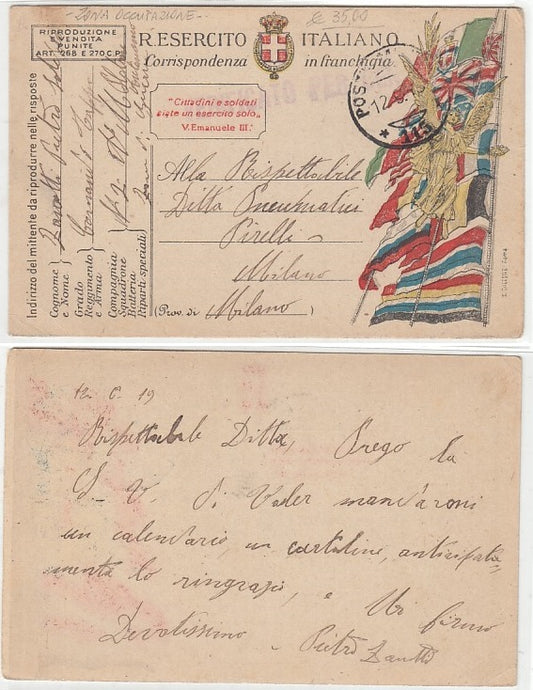 ZONA OCCUPAZIONE
£ 35,00
RIPRODUZIONE
E VENDITA
PUNITE
ART. 268 E 270 C.P.
R. ESERCITO ITALIANO
Corrispondenza in franchigia
"Cittadini e soldati
siate un esercito solo„
V. Emanuele III.
POSTA
12.6
113
Alla Rispettabile
Ditta Pneumatici
Pirelli
Milano
(Prov. di Milano)
Indirizzo del mittente da riprodurre nelle risposte
Cognome
e Nome
Pietro
Grado
Reggimento
e Arma
Compagnia
Squadrone
Batteria
Riparti speciali
Zona di Guerra
12. 6. 19
Rispettabile Ditta, Prego la
S. V. di Voler mandaroni
un calendario, un cartoline, anticipata-
menta lo ringrazi, e Mi firmo
Devotissimo - Pietro Zanotto